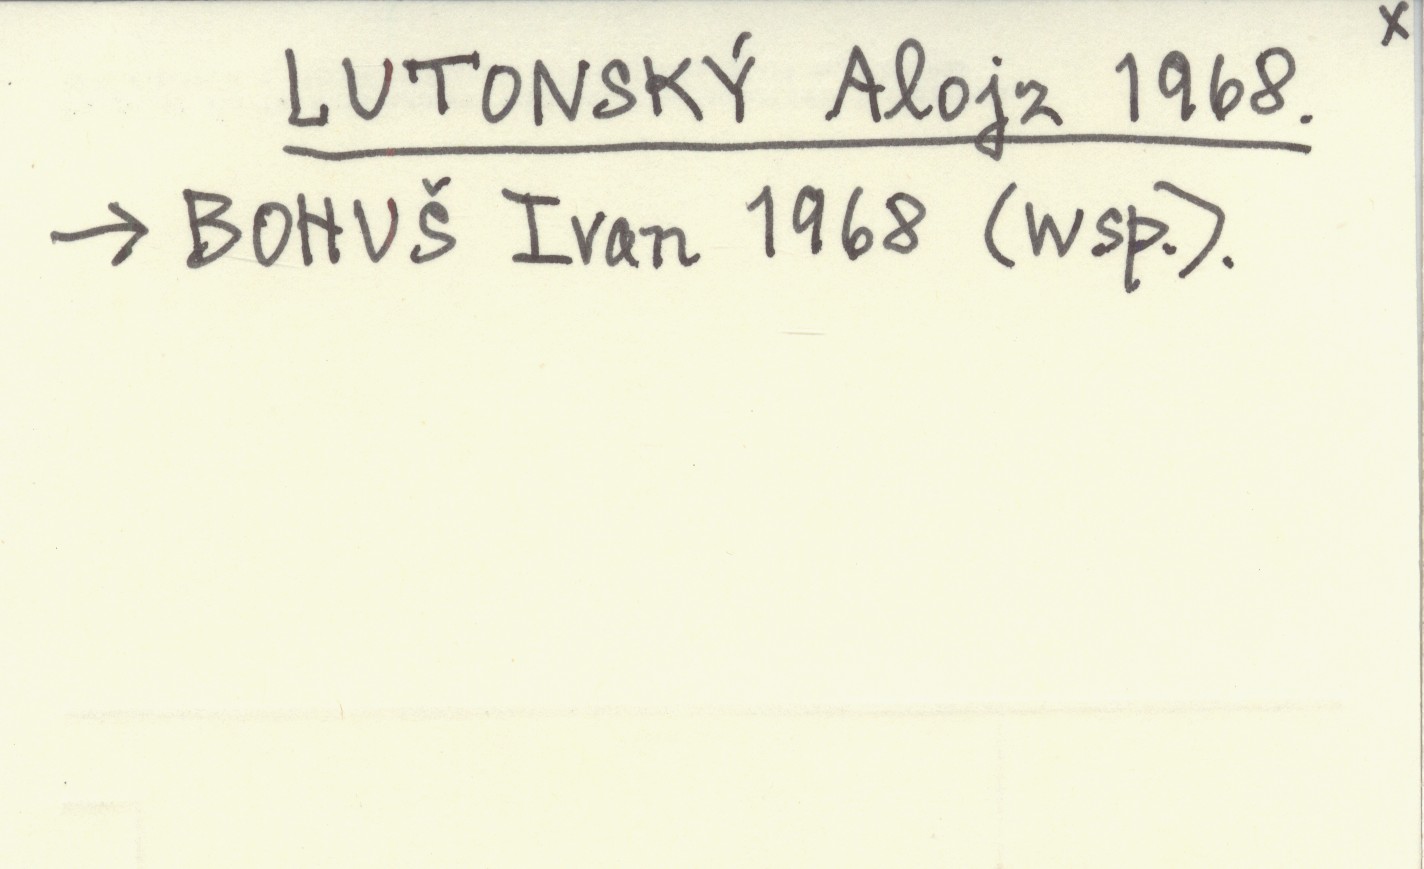 x
LUTONSKÝ Alojz 1968.
→ BOHUŠ Ivan 1968 (wsp.).